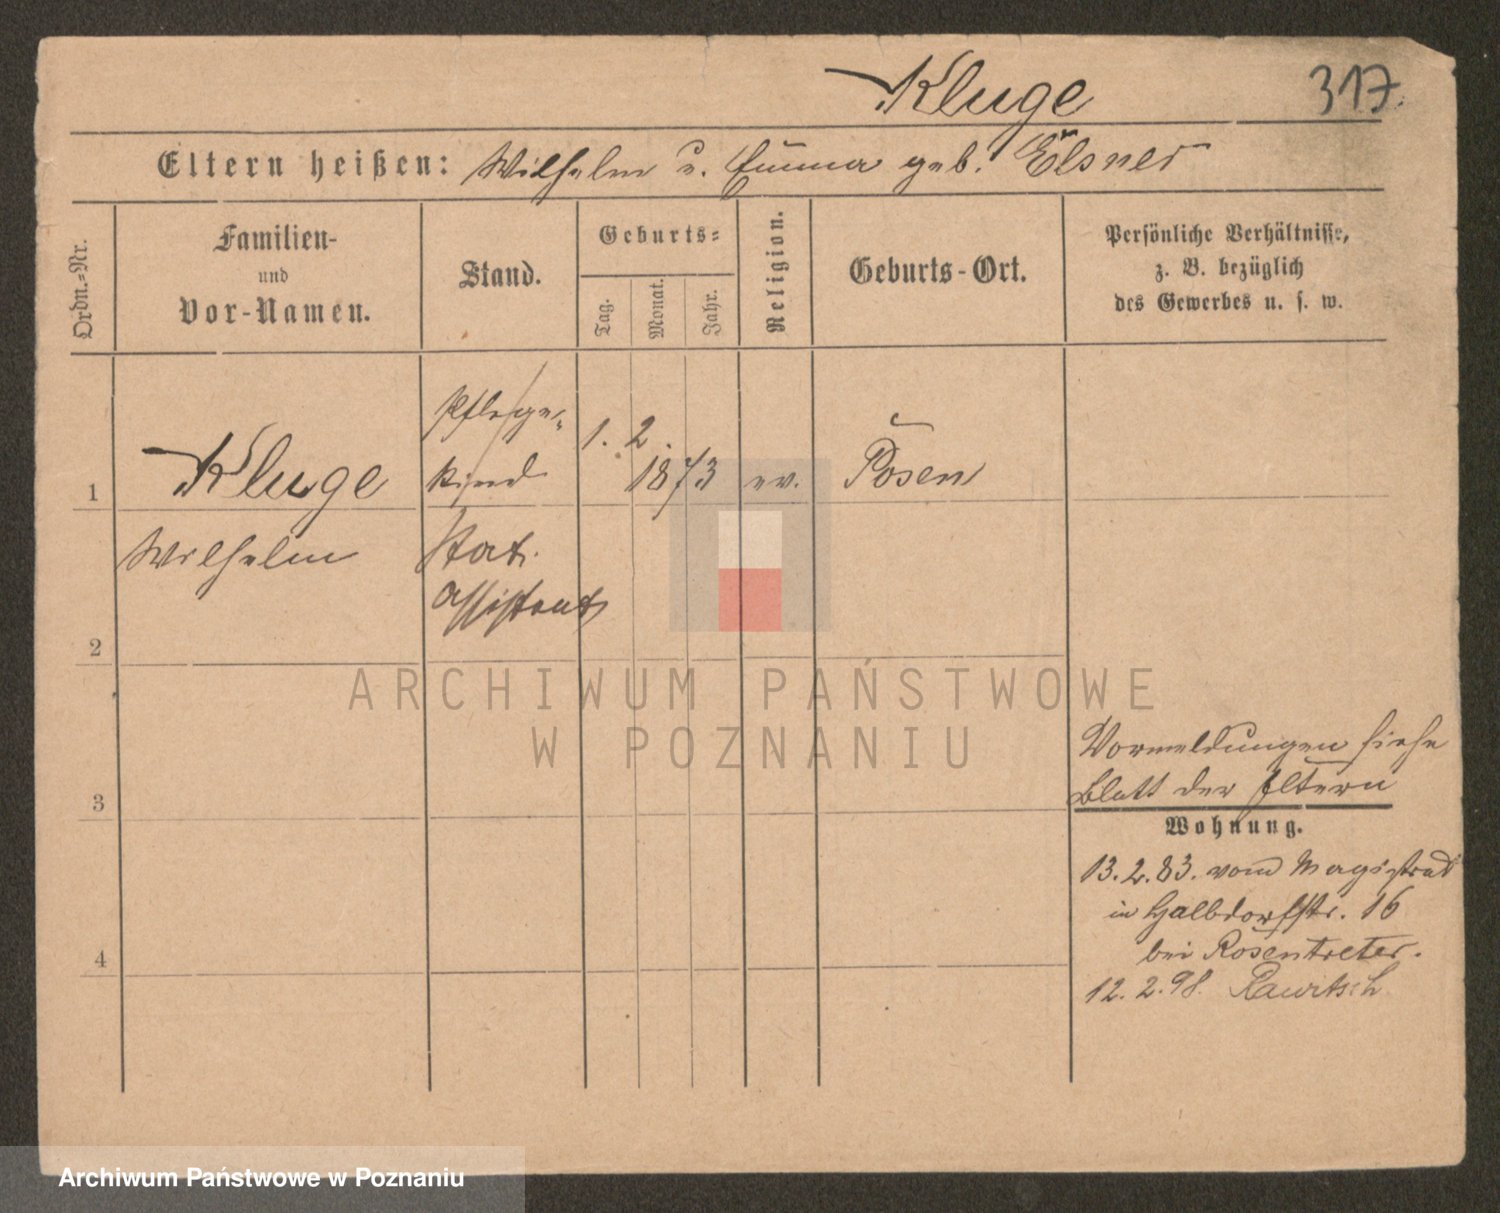 Kluge
317.
Eltern heißen: Wilhelm u. Emma geb. Elsner
Ordn.-Nr.
Familien-
und
Vor-Namen.
Stand.
Geburts-
Tag.
Monat.
Jahr.
Religion.
Geburts-Ort.
Persönliche Verhältnisse,
z. B. bezüglich
des Gewerbes u. s. w.
1
Kluge
Wilhelm
Pflege-
kind
Stat.
Assistent
1. 2.
1873
ev.
Posen
2
3
4
Vormeldungen siehe
Blatt der Eltern
Wohnung.
13.2.83. vom Magistrat
in Halbdorfstr. 16
bei Rosentreter.
12.2.98. Rawitsch
ARCHIWUM PAŃSTWOWE
W POZNANIU
Archiwum Państwowe w Poznaniu